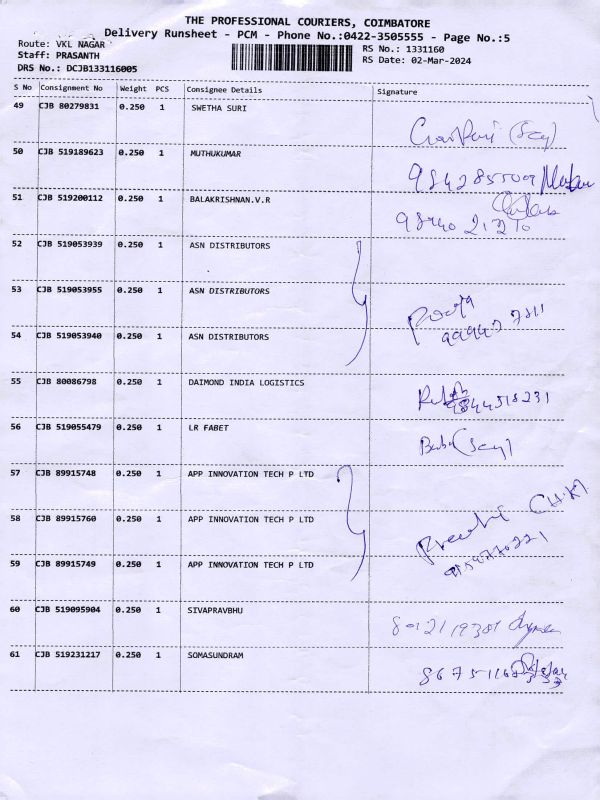 THE PROFESSIONAL COURIERS, COIMBATORE
Delivery Runsheet - PCM - Phone No.:0422-3505555 - Page No.:5
Route: VKL NAGAR
RS No.: 1331160
Staff: PRASANTH
RS Date: 02-Mar-2024
DRS No.: DCJB133116005
S No Consignment No Weight PCS Consignee Details Signature
49 CJB 80279831 0.250 1 SWETHA SURI
(Say)
50 CJB 519189623 0.250 1 MUTHUKUMAR
9842855509
51 CJB 519200112 0.250 1 BALAKRISHNAN.V.R
52 CJB 519053939 0.250 1 ASN DISTRIBUTORS
53 CJB 519053955 0.250 1 ASN DISTRIBUTORS
54 CJB 519053940 0.250 1 ASN DISTRIBUTORS
55 CJB 80086798 0.250 1 DAIMOND INDIA LOGISTICS
56 CJB 519055479 0.250 1 LR FABET
(Say)
57 CJB 89915748 0.250 1 APP INNOVATION TECH P LTD
58 CJB 89915760 0.250 1 APP INNOVATION TECH P LTD
59 CJB 89915749 0.250 1 APP INNOVATION TECH P LTD
60 CJB 519095904 0.250 1 SIVAPRAVBHU
61 CJB 519231217 0.250 1 SOMASUNDRAM